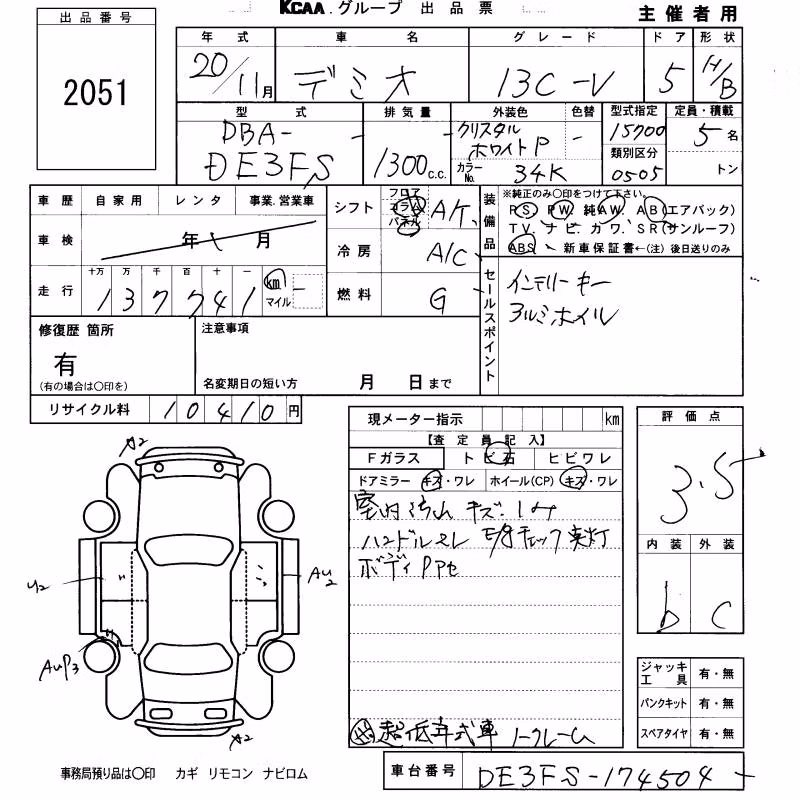 KCAA.グループ 出品票
主催者用
出品番号
2051
年式 車名 グレード ドア 形状
20/11月 デミオ 13C-V 5 H/B
型式 排気量 外装色 色替 型式指定 定員・積載
DBA-
DE3FS
1300 c.c.
クリスタル
ホワイトP
-
カラーNo. 34K
15700
類別区分
0505
5名
トン
車歴 自家用 レンタ 事業.営業車
車検 年 月
走行 十万 万 千 百 十 一
137741 km マイル
シフト フロア コラム パネル A/T
冷房 A/C
燃料 G
装備品
※純正のみ〇印をつけて下さい。
PS. PW. 純AW. AB(エアバック)
TV. ナビ. カワ. SR(サンルーフ)
ABS. 新車保証書←(注)後日送りのみ
セールスポイント
インテリーキー
アルミホイル
修復歴 箇所
有
(有の場合は〇印を)
注意事項
名変期日の短い方 月 日まで
リサイクル料 10410円
現メーター指示 km
【査定員記入】
Fガラス トビ石 ヒビワレ
ドアミラー キズ・ワレ ホイール(CP) キズ・ワレ
室内 キズ.
ハンドルスレ チェック
ボディ
超低年式車 ノークレーム
評価点
3.5
内装 外装
b C
ジャッキ工具 有・無
パンクキット 有・無
スペアタイヤ 有・無
A2
U2
AU2
AUP3
A2
事務局預り品は〇印 カギ リモコン ナビロム
車台番号 DE3FS-174504